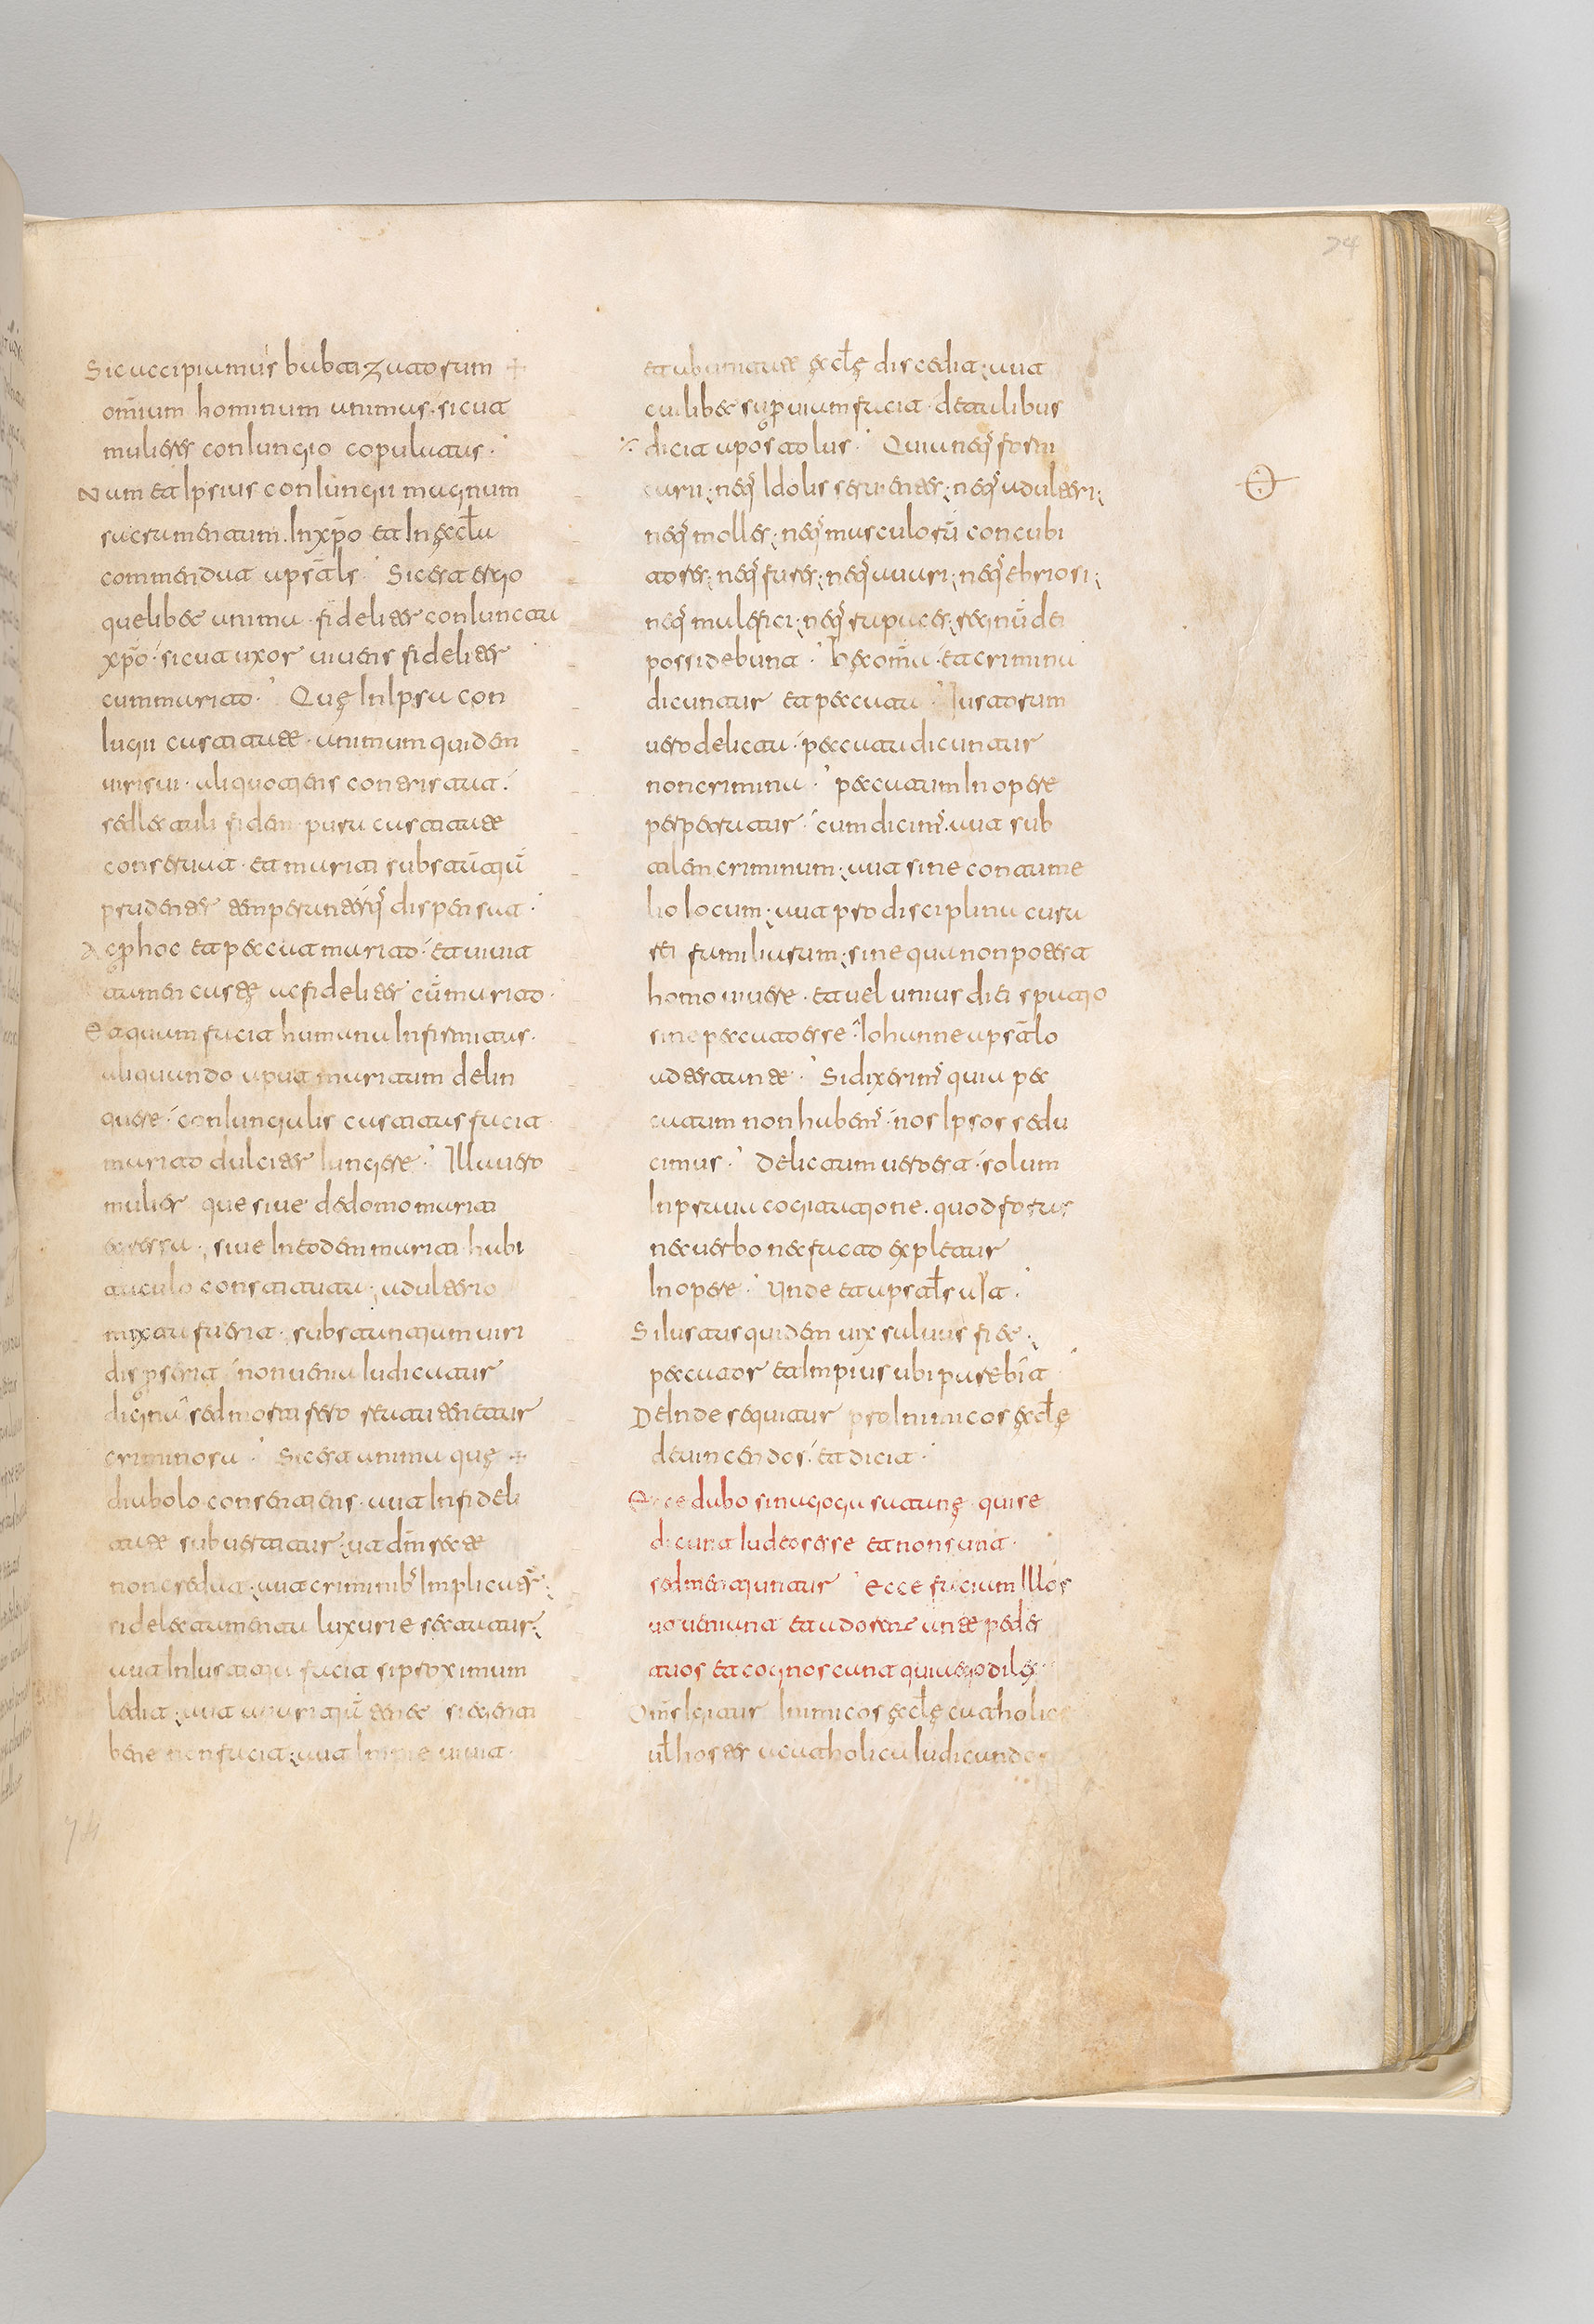 74
Sic accipiamus babtizatorum
om̄ium hominum animas. sicut
mulieres coniungio copulatas.
Nam et ipsius coniungii magnum
sacramentum. In xp̄o et in ęccl̄a
commendat apsāls. Sic est ergo
quelibet anima fideliter coniuncta
xp̄o. sicut uxor uiuens fideliter
cum marito. Quę in ipsa con
iugii castitate. animum quidem
uiri sui. aliquotiens contristat.
sed lectuli fidem pura castitate
conseruat. et mariti substātiā
prudenter temperanterq; dispensat.
Ac ꝑ hoc et peccat marito. et uiuit
tamen caste ac fideliter cū marito.
Et quam facit humana infirmitas.
aliquando aput maritum delin
quere. coniungalis castitas facit
marito dulciter iungere. Illa uero
mulier que siue de domo mariti
siue in eodem mariti habi
taculo constituta. adulterio
mixta fuerit. substantiam uiri
non uenia iudicatur
digna. sed mortifero reatu tenetur
criminosa. Sic est anima quę
diabolo consentiens. aut infideli
tate subuertitur. ut dm̄ recte
non credat. aut criminib; implicata.
luxurie sectatur.
aut facit si proximum
ledit. aut tenet si egenti
bene non facit. aut uiuit.
et ab unitate ęccl̄ę discedit. aut
cuilibet suꝑuium facit. de talibus
dicit apostolus. Quia neq; forni
carii. neq; idolis seruientes. neq; adulteri.
neq; molles. neq; masculorū concubi
tores. neq; fures. neq; auari. neq; ebriosi.
neq; malefici. neq; rapaces. regnū dei
possidebunt. hęc om̄ia et crimina
dicuntur et peccata. Iustorum
uero delicta. peccata dicuntur
non crimina. peccatum in opere
perpetratur. cum dicim; aut sub
aut sine contume
lio locum. aut pro disciplina cura
rei familiarum. sine qua non potest
homo uiuere. et uel unius diei spatio
sine peccato esse. Iohanne apsālo
adtestante. Si dixerim; quia pec
catum non habem; nos ipsos sedu
cimus. Delictum uero est. solum
in praua cogitatione. quod forus
nec uerbo nec facto expletur
in opere. Unde et
Si iustus quidem uix saluus fiet.
peccator et impius ubi parebit
Deinde sequitur pro inimicos ęccl̄ę
deuincendos. et dicit.
Ecce dabo sinagoga satanę qui se
dicunt iudeos esse et non sunt.
sed mentiuntur Ecce faciam illos
ut ueniant et adorent ante pedes
tuos et cognoscant quia ego dilexi
inimicos ęccl̄ę catholicę
catholica iudicando
74